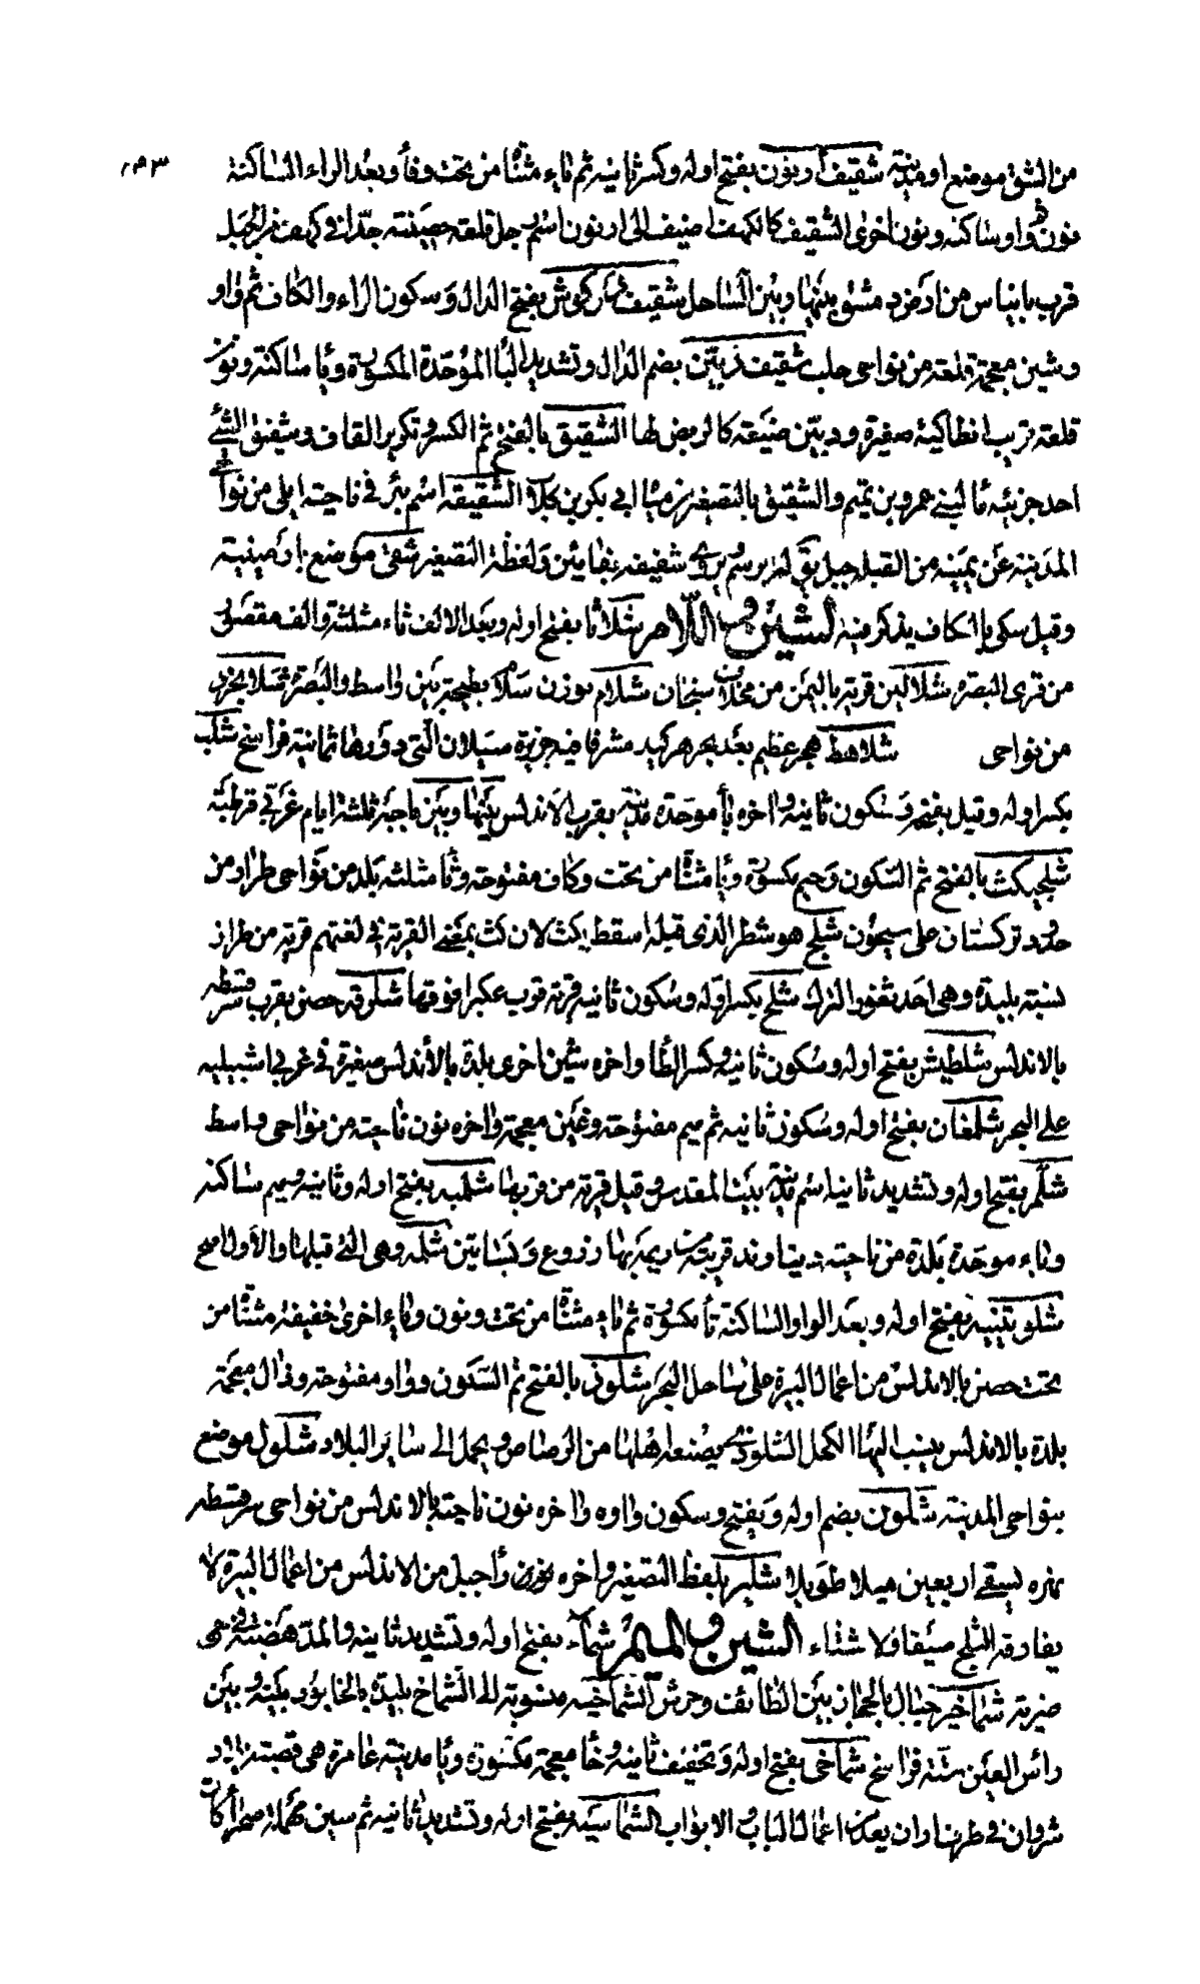 ٢٩٣
من الشق موضع او مدينة شقيف ارنون بفتح اوله وكسر ثانيه ثم ياء مثناة من تحت وفاء وبعد الراء الساكنة
نون ثم واو ساكنة ونون اخرى الشقيف كالكهف اضيف الى ارنون اسم رجل قلعة حصينة جدا في كهف من الجبل
قرب بانياس من ارض دمشق بينها وبين الساحل شقيف دركوش بفتح الدال وسكون الراء والكاف ثم واو
وشين معجمة قلعة من نواحي حلب شقيف دبين بضم الدال وتشديد الباء الموحدة المكسورة ويا ساكنة ونون
قلعة قريب انطاكية صغيرة ودبين ضيعة كالربض لها الشقيق بالفتح ثم الكسر وتكرير القاف وشقيق الشئ
احد جزئيه ماء لبني عمرو بن تميم والشقيق بالتصغير من مياه ابي بكر بن كلاب الشقيقة اسم بئر في ناحية ابلى من نواحي
المدينة عن يمينه من القبلة جبل يقال له برثم ويروى شفيفه بفائين ولفظة التصغير شقى موضع بارمينية
وقيل سكى بالكاف يذكر فيه الشين واللام شلاثا بفتح اوله وبعد الالف ثاء مثلثة والف مقصورة
من قرى البصره شلالين قرية باليمن من مخلاف سنحان شلام بوزن سلام بطيحة بين واسط والبصرة شلانجرد
من نواحي شلاهط بحر عظيم بعد بحر هركند مشرقا فيه جزيرة سيلان التى دورها ثمانية فراسخ شلب
بكسر اوله وقيل بفتحه وسكون ثانيه واخره باء موحدة مدينة بغرب الاندلس بينها وبين باجة ثلثة ايام غربي قرطبة
شلجيكث بالفتح ثم السكون وجيم مكسورة ويا مثناة من تحت وكاف مفتوحة وثاء مثلثه بلد من نواحي طراز من
حدود تركستان على سيحون شلج هو شطر الذى قبله اسقط يكث لان كث بمعنى القرية في لغتهم قرية من طراز
تشبه بليدة وهى احد ثغور الترك شلح بكسر اوله وسكون ثانيه قرية قرب عكبرا فوقها شلوقه حصن بقرب سرقسطه
بالاندلس شلطيش بفتح اوله وسكون ثانيه وكسر الطاء واخره شين اخرى بلدة بالأندلس صغيرة في غربي اشبيليه
على البحر شلمغان بفتح اوله وسكون ثانيه ثم ميم مفتوحة وغين معجمة واخره نون ناحية من نواحي واسط
شلم بفتح اوله وتشديد ثانيه اسم مدينة بيت المقدس وقيل قرية من قربها شلمبه بفتح اوله وثانيه وميم ساكنه
وباء موحدة بلدة من ناحية دنباوند قريبة من ويمه بها زروع وبساتين شلمه وهى التي قبلها والأول اصح
شلوبينيه بفتح اوله وبعد الواو الساكنة باء مكسورة ثم ياء مثناة من تحت ونون وياء اخرى خفيفة مثناة من
تحت حصن بالاندلس من اعمال البيرة على ساحل البحر شلوذ بالفتح ثم السكون وواو مفتوحة وذال معجمة
بلدة بالاندلس ينسب اليها الكحل الشلوذى يصنعه اهلها من الرصاص ويحمل الى ساير البلاد شلول موضع
بنواحي المدينة شلون بضم اوله ويفتح وسكون واوه واخره نون ناحية بالاندلس من نواحي سرقسطه
نهره يسقى اربعين ميلا طويلا شلير بلفظ التصغير واخره راء جبل من الاندلس من اعمال البيرة لا
يفارقه الثلج صيفا ولا شتاء الشين والميم شماء بفتح اوله وتشديد ثانيه والمد هضبة في حمى
ضرية شماخير جبال بالحجاز بين الطائف وجرش الشماخيه منسوبة الى الشماخ بليدة بالخابور بينه وبين
راس العين ستة فراسخ شماخى بفتح اوله وتخفيف ثانيه وخاء معجمة مكسورة ويا مدينة عامرة هى قصبة بلاد
شروان في طرف اران يعد من اعمال الباب والابواب الشماسية بفتح اوله وتشديد ثانيه ثم سين مهملة صحراء كانت